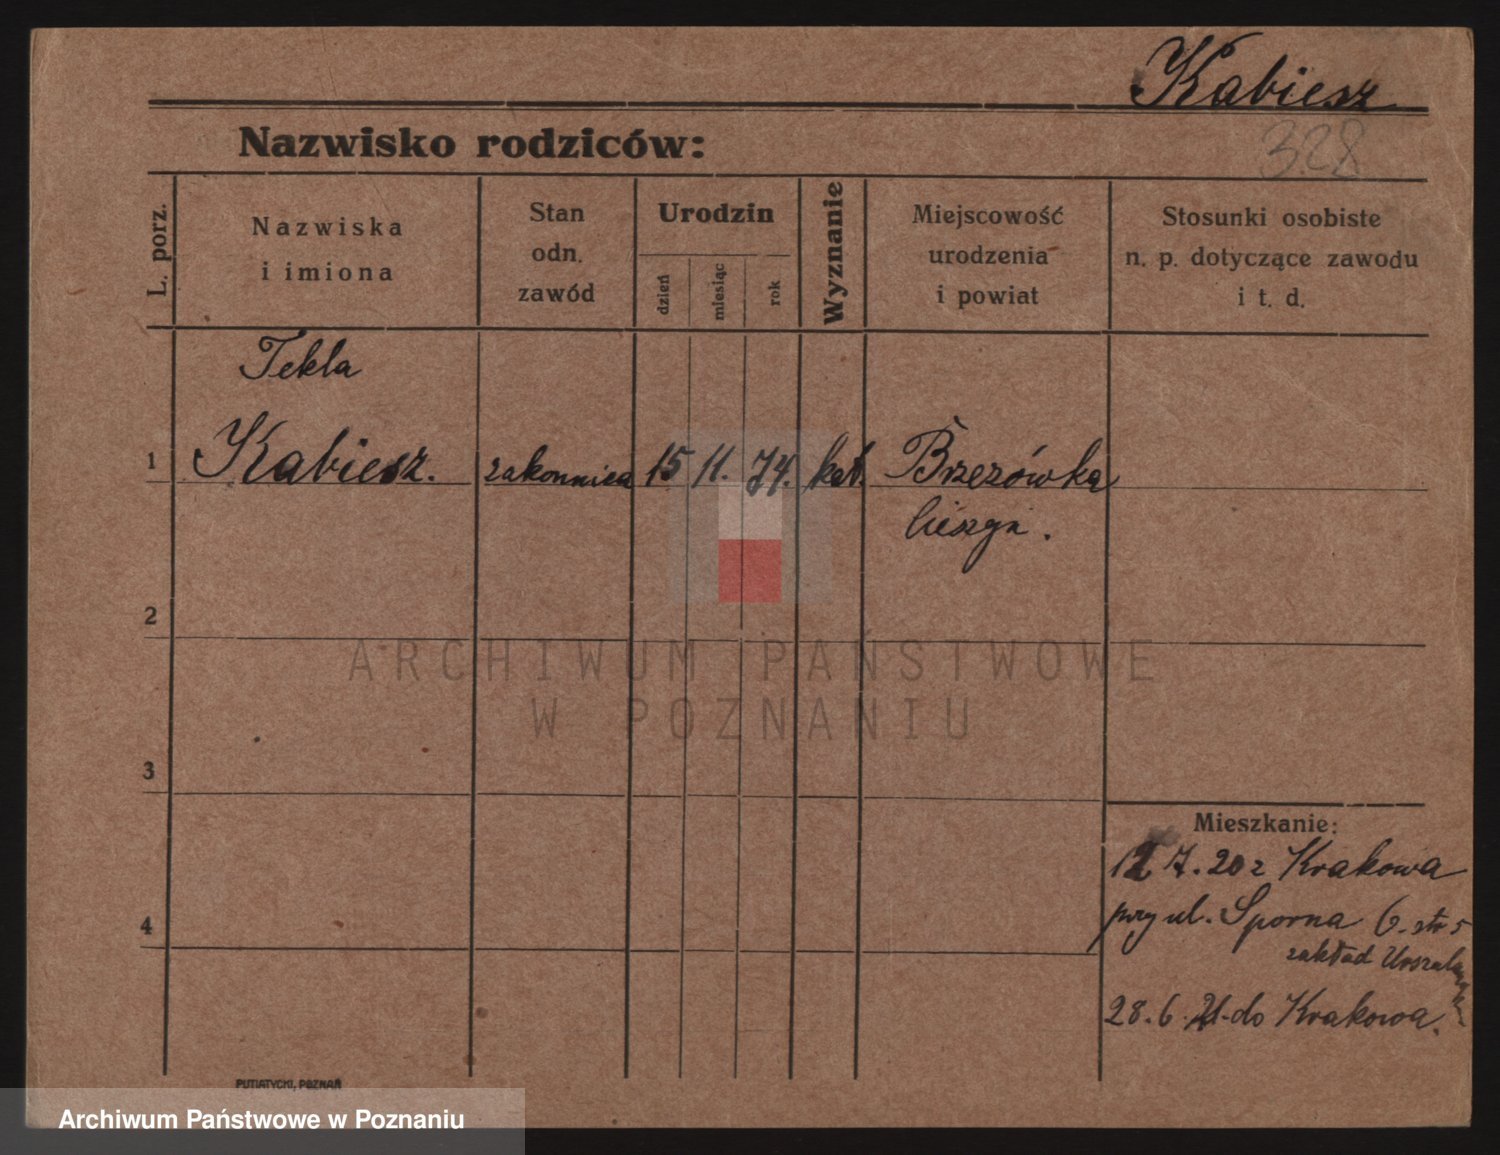 Kabiesz
328
Nazwisko rodziców:
L. porz.
Nazwiska
i imiona
Stan
odn.
zawód
Urodzin
dzień
miesiąc
rok
Wyznanie
Miejscowość
urodzenia
i powiat
Stosunki osobiste
n. p. dotyczące zawodu
i t. d.
Tekla
1 Kabiesz. zakonnica 15 11. 74. kat. Brzezówka
Cieszyn.
2
ARCHIWUM PAŃSTWOWE
W POZNANIU
3
Mieszkanie:
12 7. 20 z Krakowa
przy ul. Sporna 6. str 5
zakład Urszulanek
4
28. 6. 21. do Krakowa.
PUTIATYCKI, POZNAŃ
Archiwum Państwowe w Poznaniu